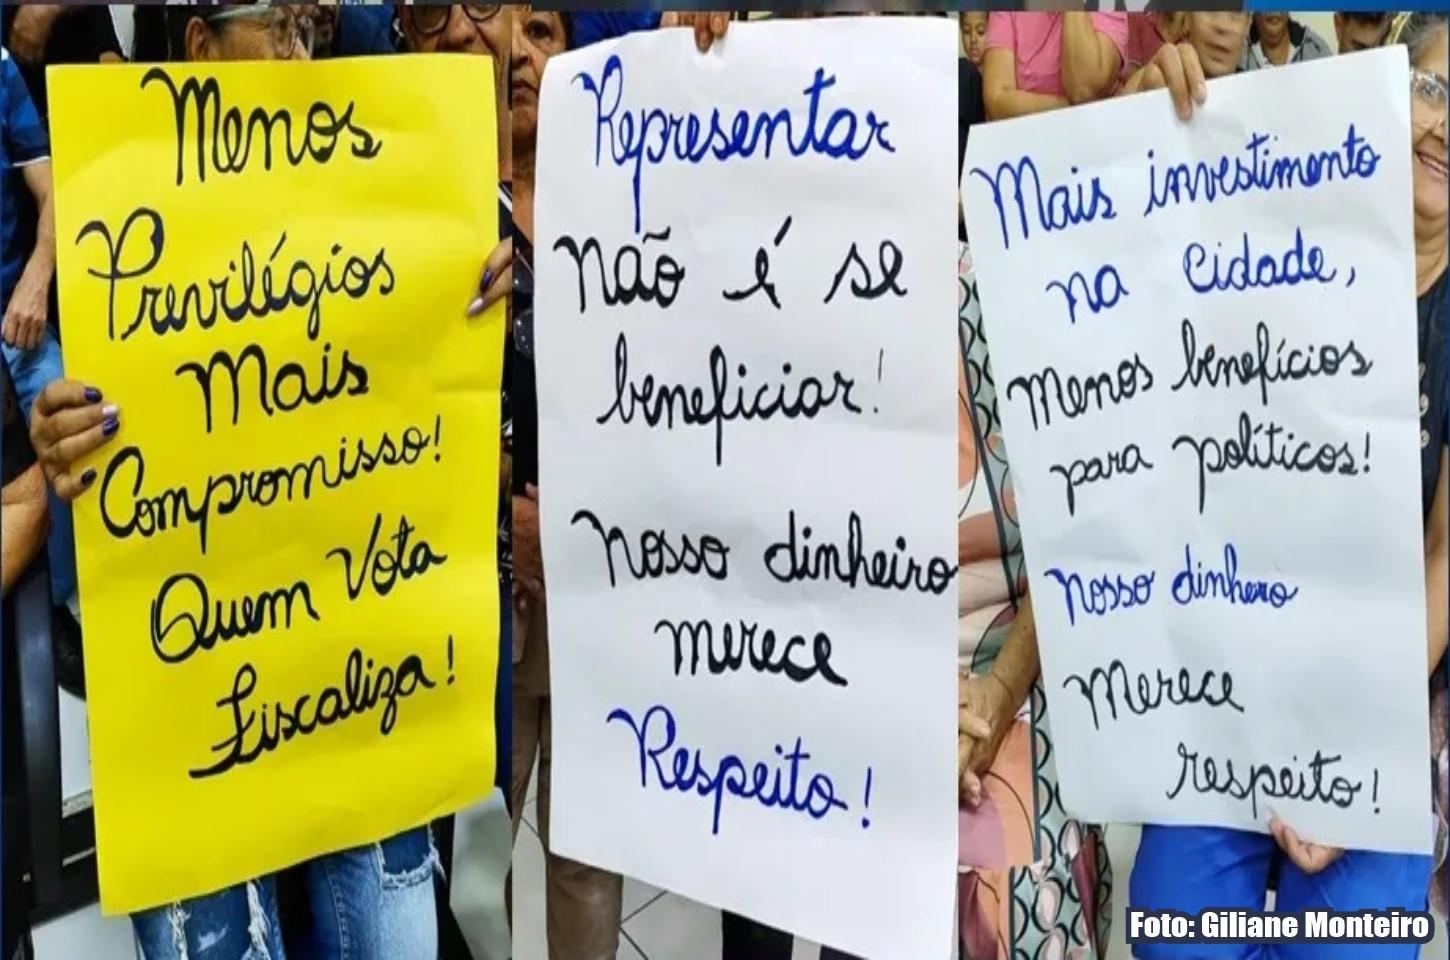 Menos
Previlégios
Mais
Compromisso!
Quem Vota
Fiscaliza!
Representar
não é se
beneficiar!
Nosso dinheiro
merece
Respeito!
Mais investimento
na Cidade,
Menos benefícios
para políticos!
Nosso dinheiro
Merece
respeito!
Foto: Giliane Monteiro